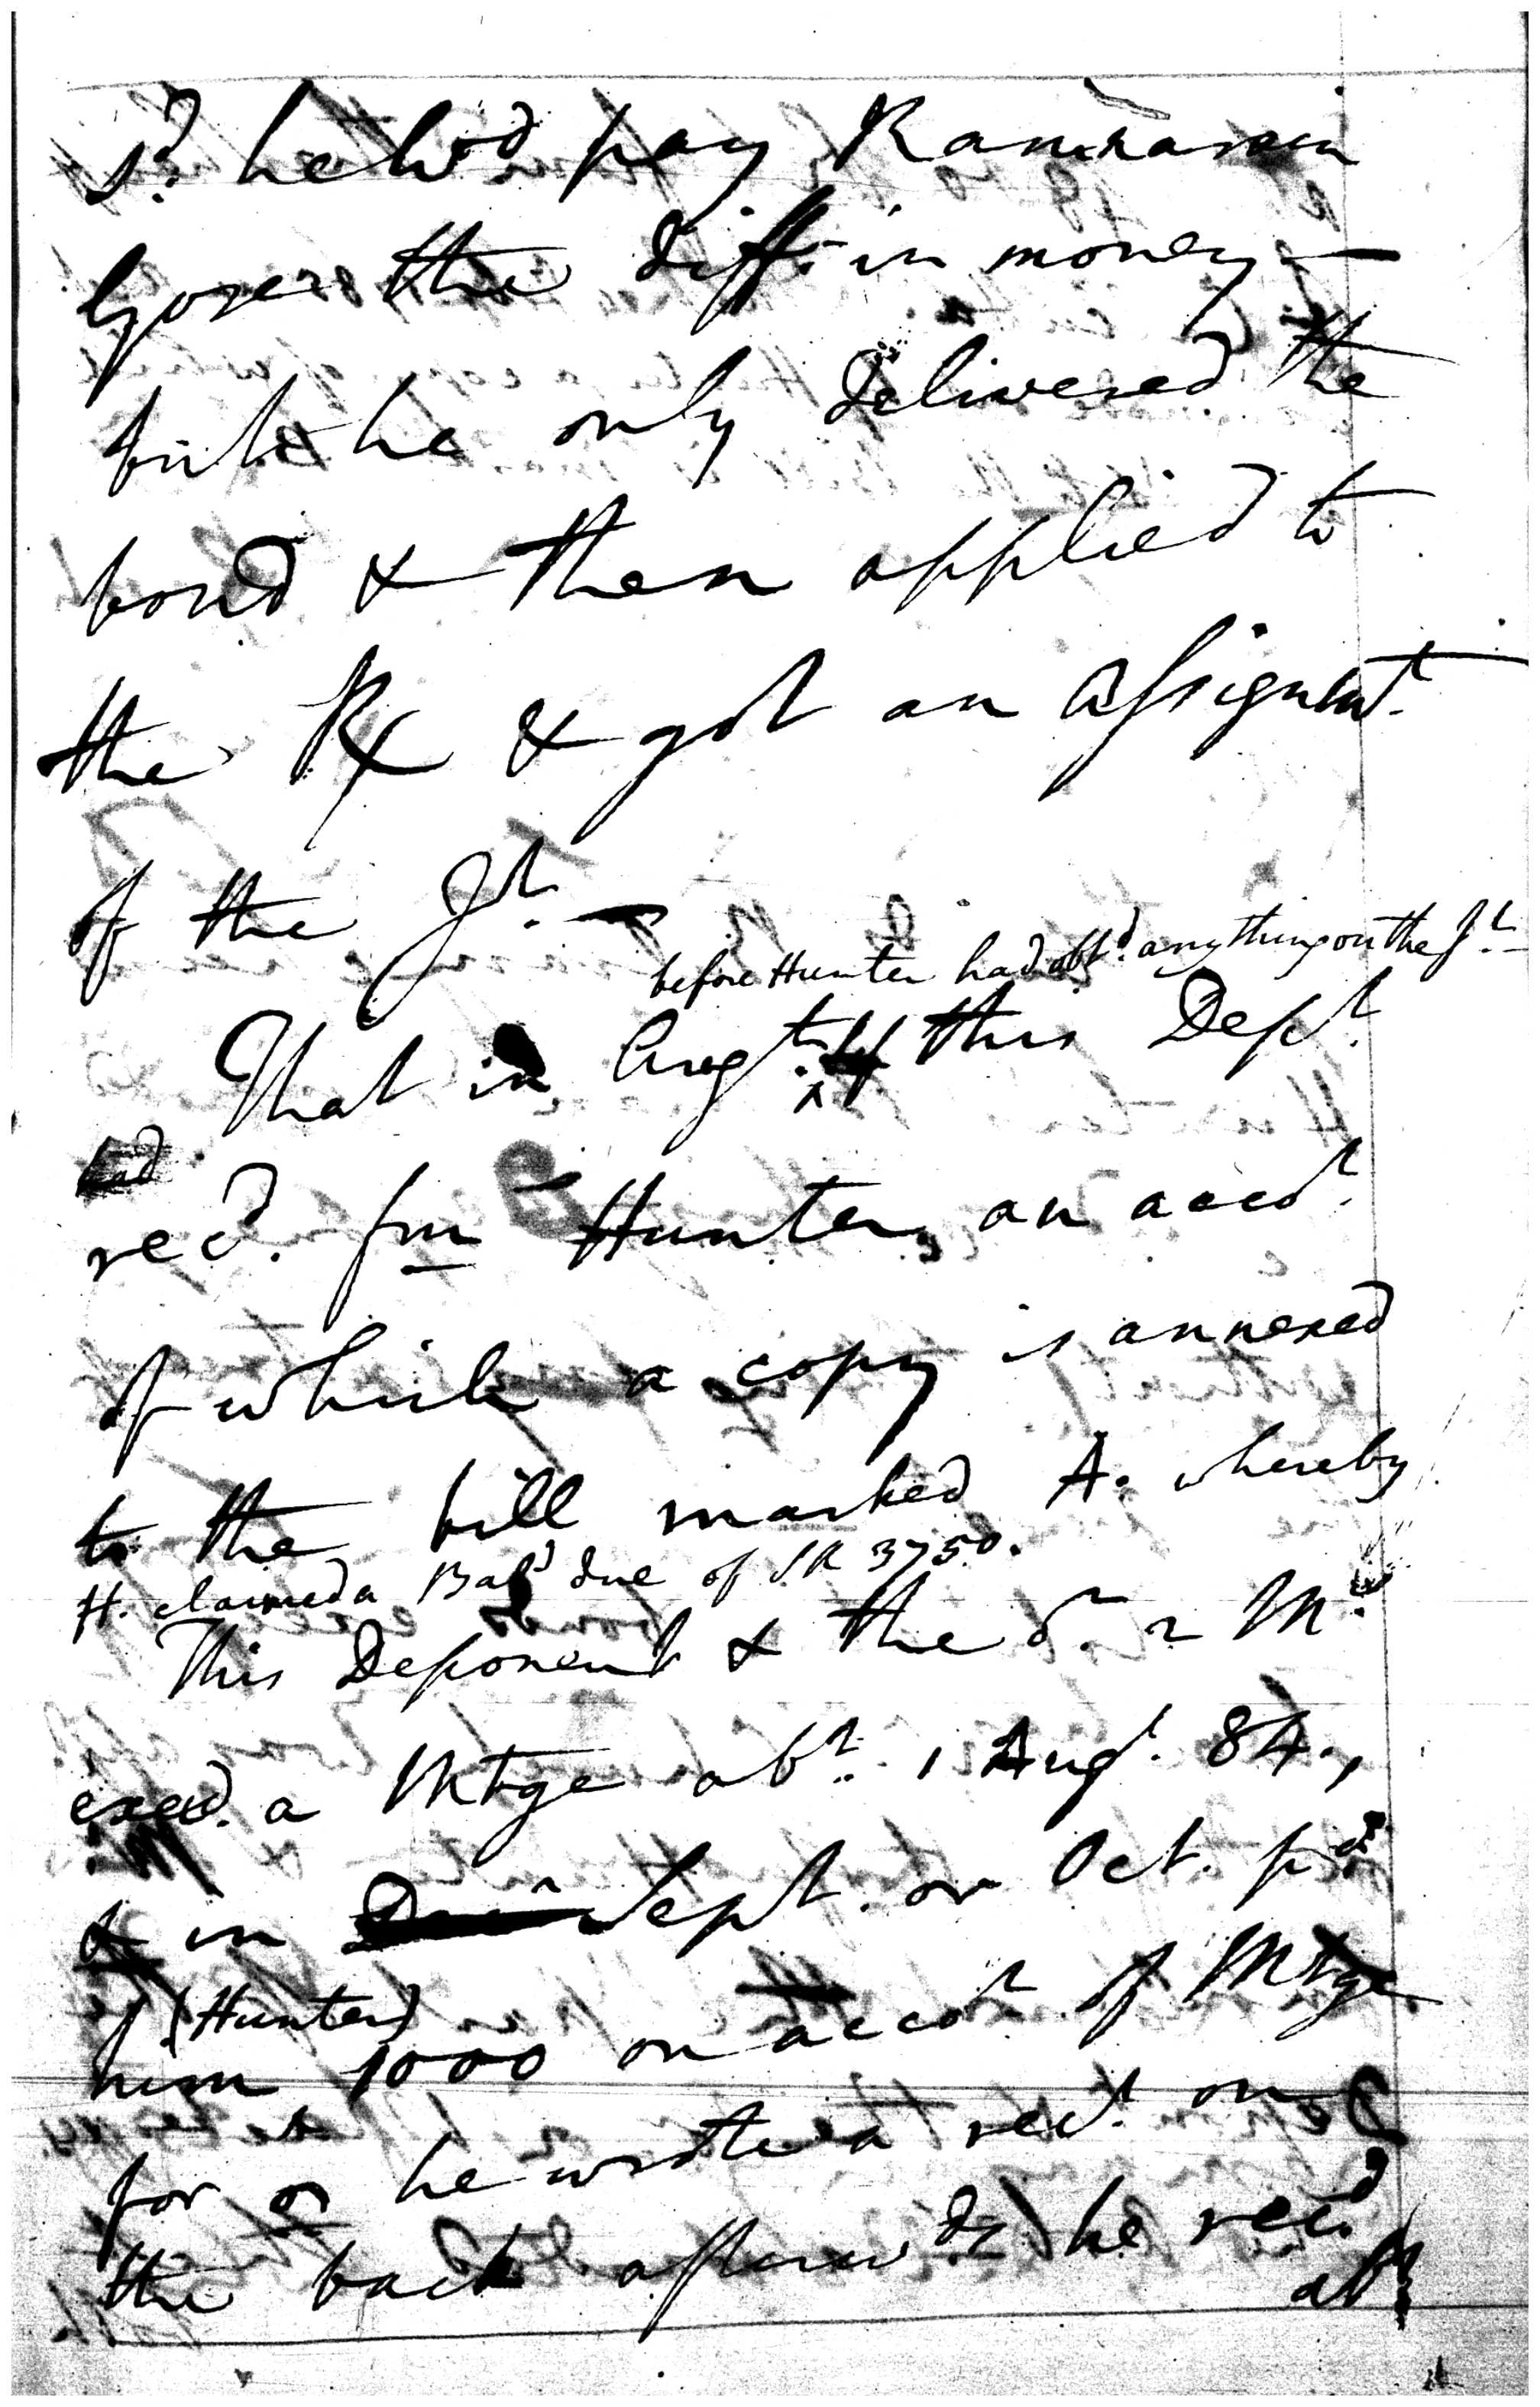 sd. he wod pay Ramnarain
Gosen the diffe. in money —
but he only delivered the
bond & then applied to
the Rx & got an assignmt.
of the Jt. —
before Hunter had obtd. anything on the Jt.
That in Augt. this Dept.
had
recd. fm Hunter, an accot.
of which a copy is annexed
to the bill marked A. whereby
H. claimed a Bale due of SR 3750.
This Deponent & the
execd. a Mtge abt. 1 Augt. 84.,
& in Sept. or Oct. pd.
(Hunter)
him 1000 on accot. of Mtge
for he wrote a rect. on
the back afterwds he recd.
abt